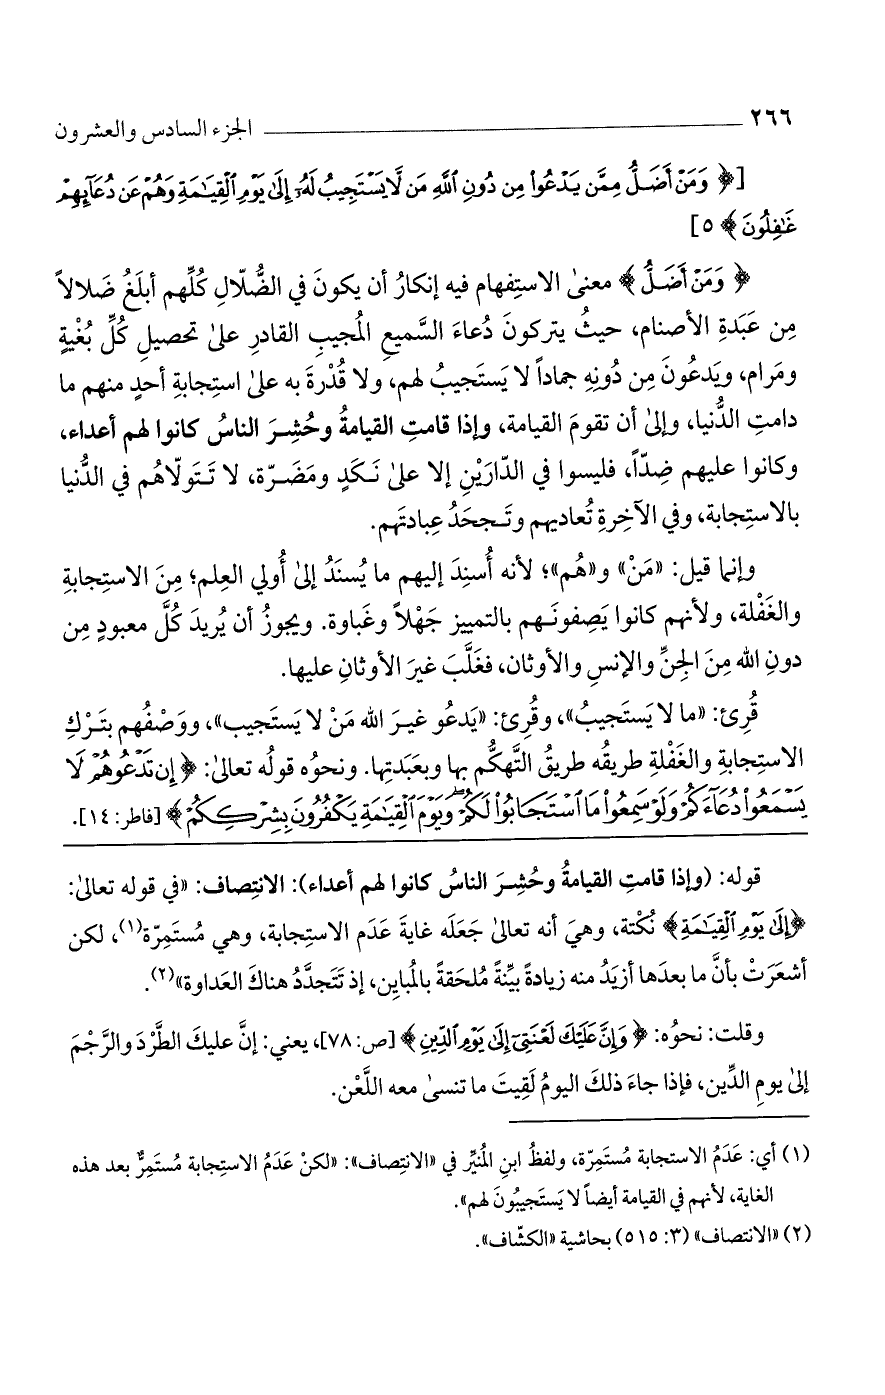 ٢٦٦ الجزء السادس والعشرون
[﴿ وَمَنْ أَضَلُّ مِمَّن يَدْعُواْ مِن دُونِ ٱللَّهِ مَن لَّا يَسْتَجِيبُ لَهُۥٓ إِلَىٰ يَوْمِ ٱلْقِيَـٰمَةِ وَهُمْ عَن دُعَآئِهِمْ
غَـٰفِلُونَ ﴾ ٥]
﴿ وَمَنْ أَضَلُّ ﴾ معنىٰ الاستِفهام فيه إنكارُ أن يكونَ في الضُّلّالِ كُلِّهم أبلَغُ ضَلالاً
مِن عَبَدةِ الأصنام، حيثُ يتركونَ دُعاءَ السَّميعِ المُجيبِ القادرِ علىٰ تحصيلِ كُلِّ بُغْيةٍ
ومَرام، ويَدعُونَ مِن دُونِهِ جماداً لا يَستَجيبُ لهم، ولا قُدْرةَ به علىٰ استِجابةِ أحدٍ منهم ما
دامتِ الدُّنيا، وإلىٰ أن تقومَ القيامة، وإذا قامتِ القيامةُ وحُشِـرَ الناسُ كانوا لهم أعداء،
وكانوا عليهم ضِدّاً، فليسوا في الدّارَيْنِ إلا علىٰ نَـكَدٍ ومَضَـرّة، لا تَـتَولّاهُم في الدُّنيا
بالاستِجابة، وفي الآخِرةِ تُعاديهم وتَـجحَدُ عِبادتَهم.
وإنما قيل: «مَنْ» و«هُم»؛ لأنه أُسنِدَ إليهم ما يُسنَدُ إلىٰ أُولي العِلم؛ مِنَ الاستِجابةِ
والغَفْلة، ولأنهم كانوا يَصِفونَـهم بالتمييز جَهْلاً وغَباوة. ويجوزُ أن يُريدَ كُلَّ معبودٍ مِن
دونِ الله مِنَ الجِنِّ والإنسِ والأوثان، فغَلَّبَ غيرَ الأوثانِ عليها.
قُرِئ: «ما لا يَستَجيبُ»، وقُرِئ: «يَدعُو غيـرَ الله مَنْ لا يَستَجيب»، ووَصْفُهم بتَـرْكِ
الاستِجابةِ والغَفْلةِ طريقُه طريقُ التَّهكُّم بها وبعَبَدَتِها. ونحوُه قولُه تعالىٰ: ﴿ إِن تَدْعُوهُمْ لَا
يَسْمَعُواْ دُعَآءَكُمْ وَلَوْ سَمِعُواْ مَا ٱسْتَجَابُواْ لَكُمْ ۖ وَيَوْمَ ٱلْقِيَـٰمَةِ يَكْفُرُونَ بِشِرْكِكُمْ ﴾ [فاطر: ١٤].
قوله: (وإذا قامتِ القيامةُ وحُشِـرَ الناسُ كانوا لهم أعداء): الانتِصاف: «في قوله تعالىٰ:
﴿إِلَىٰ يَوْمِ ٱلْقِيَـٰمَةِ ﴾ نُكْتة، وهيَ أنه تعالىٰ جَعَلَه غايةَ عَدَم الاستِجابة، وهي مُستَمِرّة(١)، لكن
أشعَرَتْ بأنَّ ما بعدَها أزيَدُ منه زيادةً بيِّنةً مُلحَقةً بالمُباين، إذ تَتَجدَّدُ هناكَ العَداوة»(٢).
وقلت: نحوُه: ﴿ وَإِنَّ عَلَيْكَ لَعْنَتِىٓ إِلَىٰ يَوْمِ ٱلدِّينِ ﴾ [ص: ٧٨]، يعني: إنَّ عليكَ الطَّرْدَ والرَّجْمَ
إلىٰ يومِ الدِّين، فإذا جاءَ ذلكَ اليومُ لَقِيتَ ما تنسىٰ معه اللَّعْن.
(١) أي: عَدَمُ الاستجابة مُستَمِرّة، ولفظُ ابنِ المُنيِّر في «الانتِصاف»: «لكنْ عَدَمُ الاستِجابة مُستَمِرٌّ بعد هذه
الغاية، لأنهم في القيامة أيضاً لا يَستَجيبُونَ لهم».
(٢) «الانتصاف» (٣: ٥١٥) بحاشية «الكشّاف».